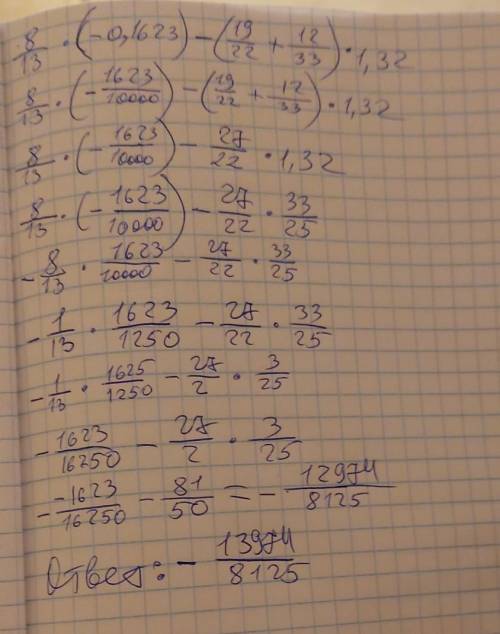 8/13 · (-0,1623) - (19/22 + 12/33) · 1,32
8/13 · (-1623/10000) - (19/22 + 12/33) · 1,32
8/13 · (-1623/10000) - 27/22 · 1,32
8/13 · (-1623/10000) - 27/22 · 33/25
-8/13 · 1623/10000 - 27/22 · 33/25
-1/13 · 1623/1250 - 27/22 · 33/25
-1/13 · 1625/1250 - 27/2 · 3/25
-1623/16250 - 27/2 · 3/25
- -1623/16250 - 81/50 = - 12974/8125
Ответ: - 13974/8125